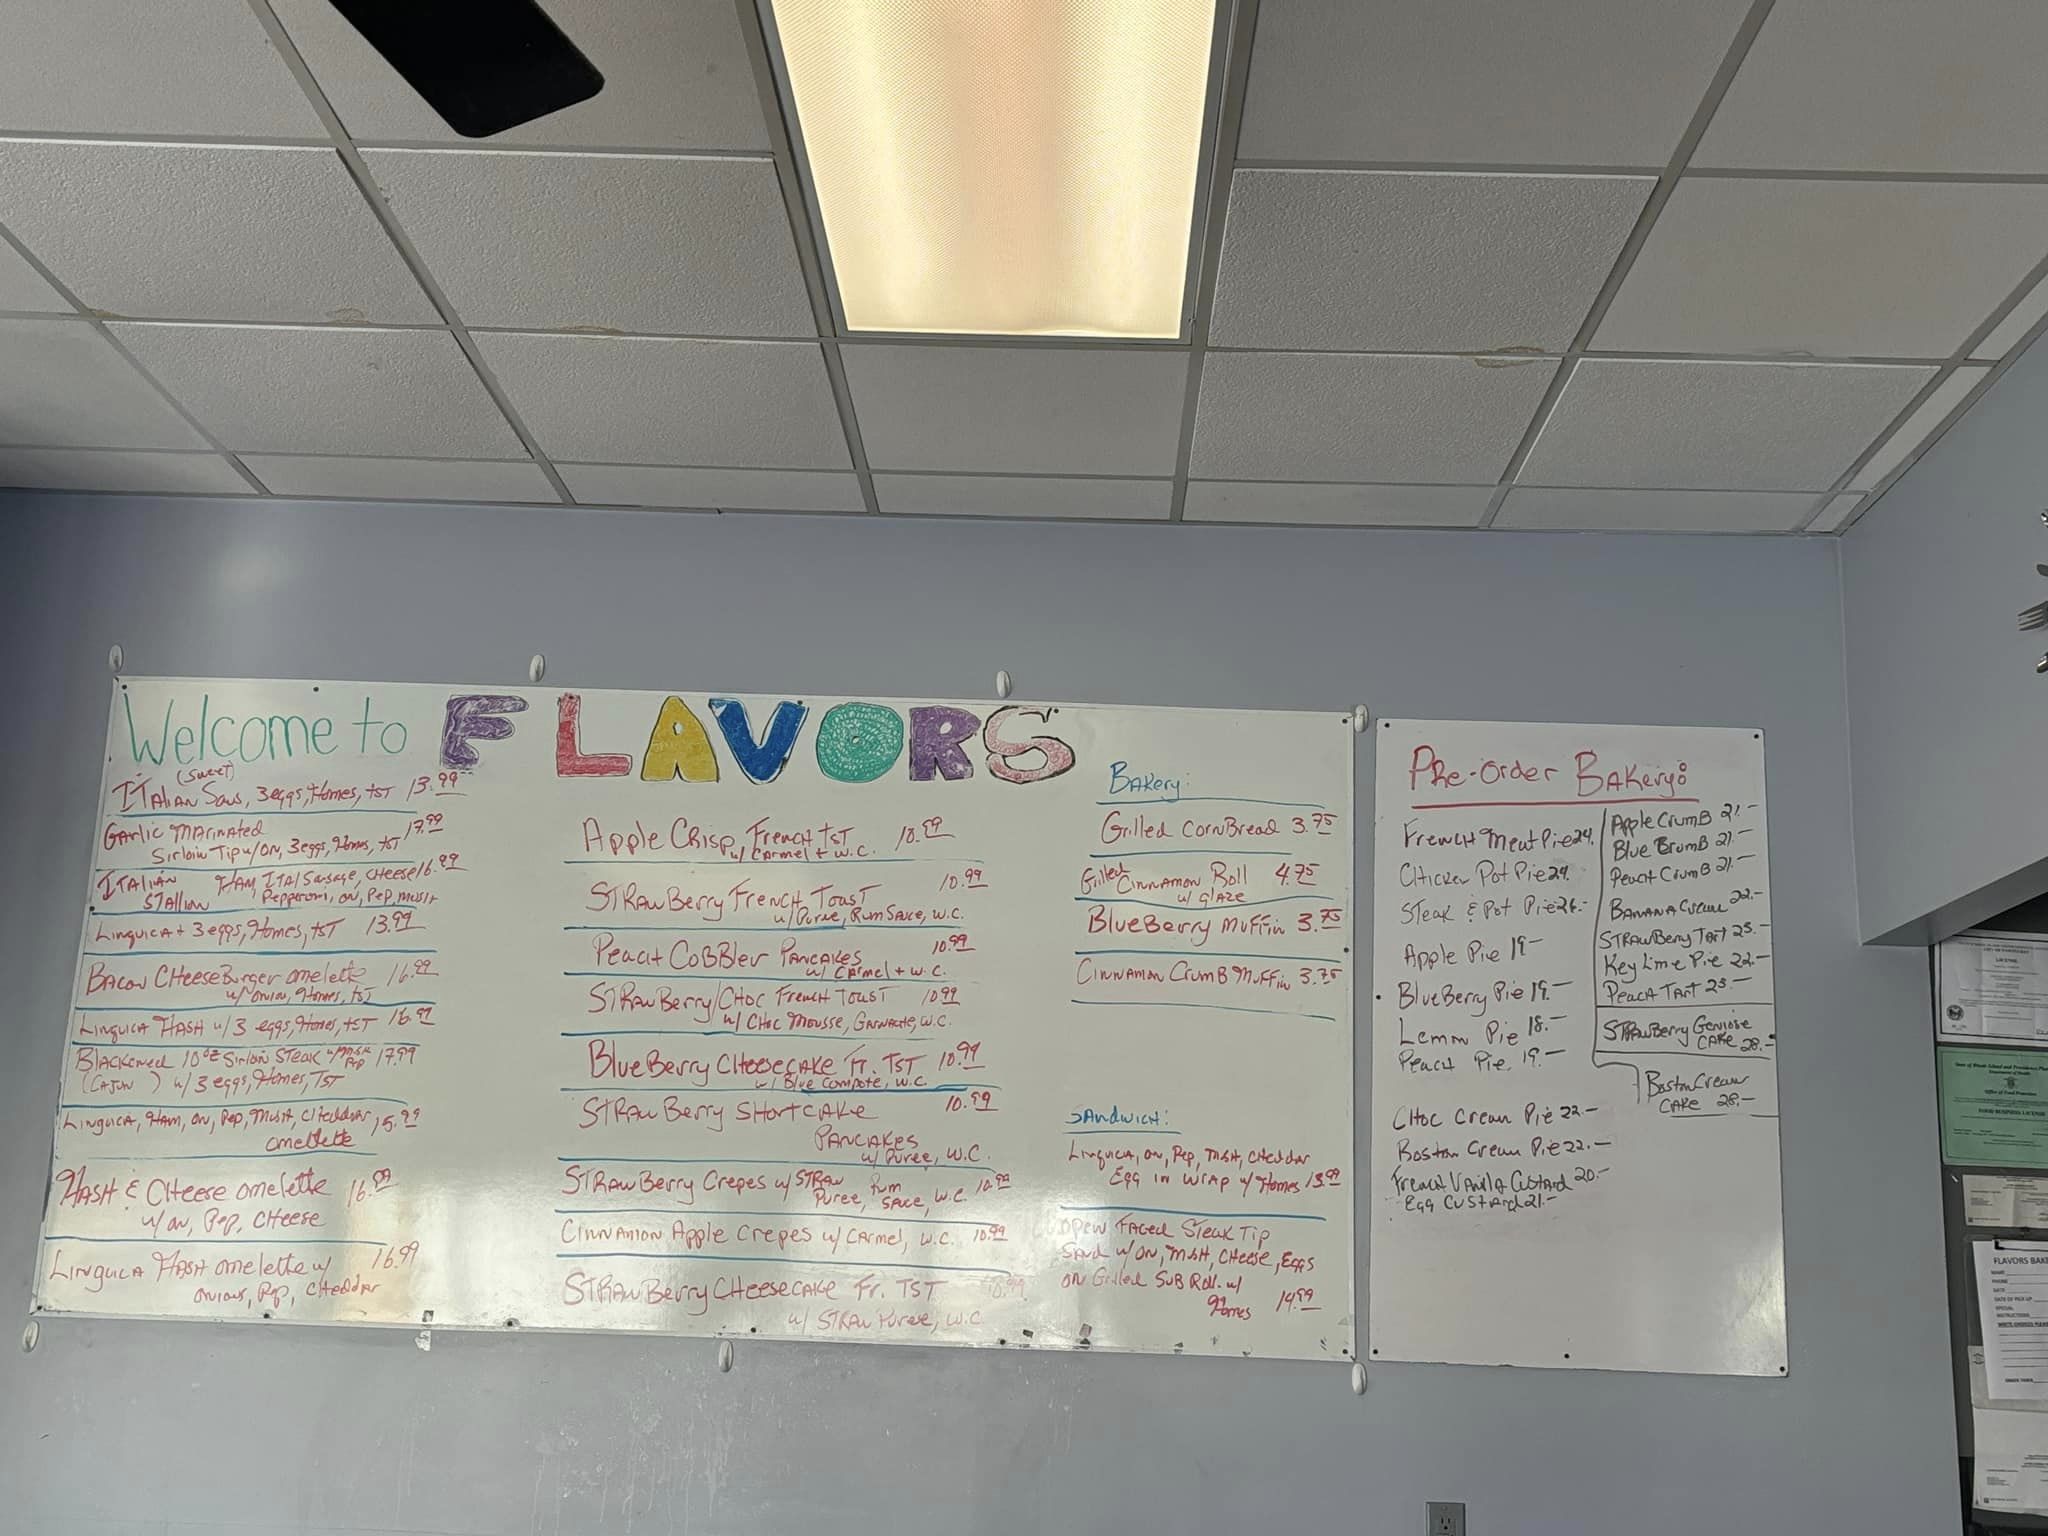 Welcome to FLAVORS
(Sweet)
Italian Saus, 3eggs, Homes, tst 13.99
Garlic Marinated 17.99
Sirloin Tip w/on, 3eggs, Homes, tst
Italian Ham, Ital Sausage, Cheese 16.99
Stallion Pepperoni, on, Pep, mush
Linguica + 3eggs, Homes, tst 13.99
Bacon CheeseBurger omelette 16.99
w/onion, Homes, tst
Linguica Hash w/3 eggs, Homes, tst 16.99
Blackened 10oz Sirloin Steak w/mush Pep 17.99
(Cajun) w/3 eggs, Homes, Tst
Linguica, Ham, on, Pep, Mush, Cheddar, 15.99
omelette
Hash & Cheese omelette 16.99
w/on, Pep, Cheese
Linguica Hash omelette w/ 16.99
onions, Pep, Cheddar
Apple Crisp French tst 10.99
w/ Carmel + w.c.
Strawberry French Toast 10.99
w/ Puree, Rum Sauce, w.c.
Peach Cobbler Pancakes 10.99
w/ Carmel + w.c.
Strawberry/Choc French Toast 10.99
w/ Choc Mousse, Ganache, w.c.
BlueBerry Cheesecake Fr. Tst 10.99
w/ Blue Compote, w.c.
Strawberry Shortcake 10.99
Pancakes
w/ Puree, w.c.
Strawberry Crepes w/ Straw Puree, Rum Sauce, w.c. 10.99
Cinnamon Apple Crepes w/ Carmel, w.c. 10.99
Strawberry Cheesecake Fr. Tst 10.99
w/ Straw Puree, w.c.
Bakery:
Grilled CornBread 3.75
Grilled Cinnamon Roll 4.75
w/ glaze
BlueBerry Muffin 3.75
Cinnamon Crumb Muffin 3.75
Sandwich:
Linguica, on, Pep, Mush, Cheddar
Egg in wrap w/ Homes 13.99
Open Faced Steak Tip
Sand w/on, Mush, Cheese, Eggs
on Grilled Sub Roll w/
Homes 14.99
Pre-Order Bakery:
French Meat Pie 24.
Chicken Pot Pie 24.
Steak & Pot Pie 26.-
Apple Pie 19-
BlueBerry Pie 19.-
Lemon Pie 18.-
Peach Pie. 19.-
Choc Cream Pie 22.-
Boston Cream Pie 22.-
French Vanilla Custard 20.-
Egg Custard 21.-
Apple Crumb 21.-
Blue Brumb 21.-
Peach Crumb 21.-
Banana Cream 22.-
Strawberry Tart 25.-
Key Lime Pie 22.-
Peach Tart 25.-
Strawberry Genoise
Cake 28.-
Boston Cream
Cake 28.-
LICENSE
FOOD BUSINESS LICENSE
FLAVORS BAKE
NAME
PHONE
DATE
DATE OF PICK UP
SPECIAL
INSTRUCTIONS